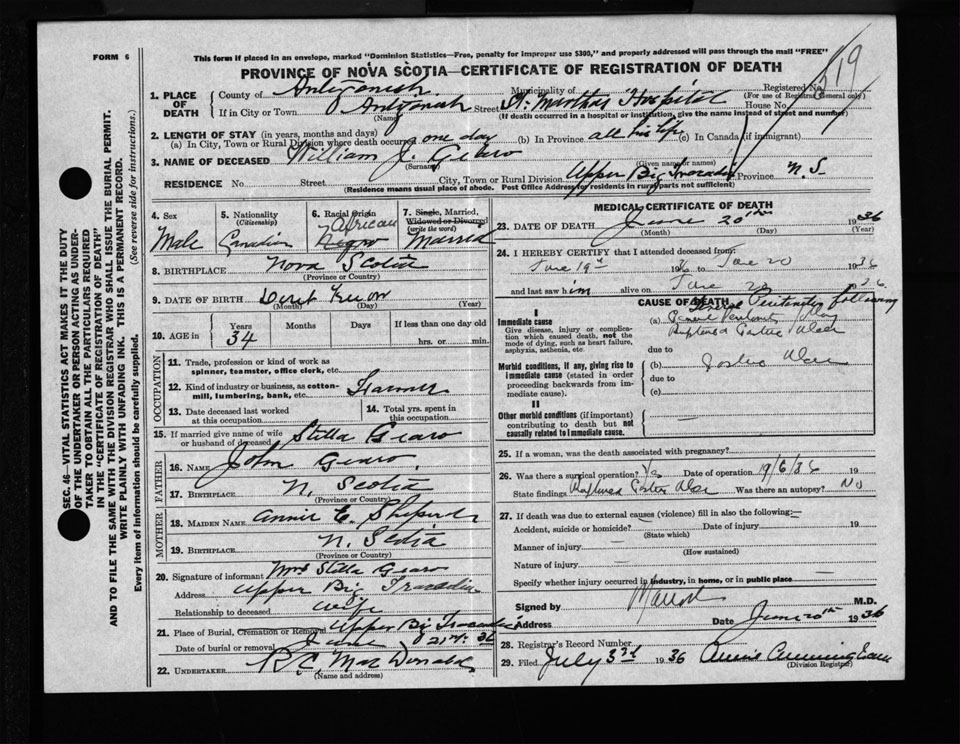 FORM 6
This form if placed in an envelope, marked "Dominion Statistics—Free, penalty for improper use $300," and properly addressed will pass through the mail "FREE"
PROVINCE OF NOVA SCOTIA—CERTIFICATE OF REGISTRATION OF DEATH
Registered No. 519
(For use of Registrar General only)
1. PLACE OF DEATH
County of Antigonish Municipality of
If in City or Town Antigonish Street St. Marthas Hospital House No.
(Name) (If death occurred in a hospital or institution, give the name instead of street and number)
2. LENGTH OF STAY (in years, months and days)
(a) In City, Town or Rural Division where death occurred one day (b) In Province all his life (c) In Canada (if immigrant)
3. NAME OF DECEASED William J. Gearo
(Surname) (Given name or names)
RESIDENCE No. Street City, Town or Rural Division Upper Big Tracadie Province N.S
(Residence means usual place of abode. Post Office Address for residents in rural parts not sufficient)
4. Sex
Male
5. Nationality
(Citizenship)
Canadian
6. Racial Origin
African
Negro
7. Single, Married, Widowed or Divorced
(write the word)
Married
8. BIRTHPLACE Nova Scotia
(Province or Country)
9. DATE OF BIRTH Dont Know
(Month) (Day) (Year)
10. AGE in
Years Months Days If less than one day old
34 hrs. or min.
OCCUPATION
11. Trade, profession or kind of work as spinner, teamster, office clerk, etc.
12. Kind of industry or business, as cotton-mill, lumbering, bank, etc. Farmer
13. Date deceased last worked at this occupation
14. Total yrs. spent in this occupation
15. If married give name of wife or husband of deceased Stella Gearo
FATHER
16. NAME John Gearo
17. BIRTHPLACE N. Scotia
(Province or Country)
MOTHER
18. MAIDEN NAME Annie E. Sheperd
19. BIRTHPLACE N. Scotia
(Province or Country)
20. Signature of informant Mrs Stella Gearo
Address Upper Big Tracadie
Relationship to deceased wife
21. Place of Burial, Cremation or Removal Upper Big Tracadie
Date of burial or removal June 21st 36
22. UNDERTAKER R.C. MacDonald
(Name and address)
MEDICAL CERTIFICATE OF DEATH
23. DATE OF DEATH June 20th 1936
(Month) (Day) (Year)
24. I HEREBY CERTIFY that I attended deceased from
June 19th 1936 to June 20 1936
and last saw him alive on June 20 1936
CAUSE OF DEATH
I
Immediate cause
Give disease, injury or complication which caused death, not the mode of dying, such as heart failure, asphyxia, asthenia, etc.
(a) General Peritonitis following
Ruptured Gastric Ulcer
due to
Morbid conditions, if any, giving rise to immediate cause (stated in order proceeding backwards from immediate cause)
(b) Gastric Ulcer
due to
(c)
II
Other morbid conditions (if important) contributing to death but not causally related to immediate cause.
25. If a woman, was the death associated with pregnancy?
26. Was there a surgical operation? Yes Date of operation 19/6/36 19
State findings Ruptured Gastric Ulcer Was there an autopsy? No
27. If death was due to external causes (violence) fill in also the following:
Accident, suicide or homicide? Date of injury 19
(State which)
Manner of injury
(How sustained)
Nature of injury
Specify whether injury occurred in industry, in home, or in public place
Signed by M.D.
Address Date June 20th 1936
28. Registrar's Record Number
29. Filed July 3rd 1936 Annie Cunningham
(Division Registrar)
SEC. 46—VITAL STATISTICS ACT MAKES IT THE DUTY
OF THE UNDERTAKER OR PERSON ACTING AS UNDER-
TAKER TO OBTAIN ALL THE PARTICULARS REQUIRED
IN THE "CERTIFICATE OF REGISTRATION OF DEATH"
AND TO FILE THE SAME WITH THE DIVISION REGISTRAR WHO SHALL ISSUE THE BURIAL PERMIT.
WRITE PLAINLY WITH UNFADING INK. THIS IS A PERMANENT RECORD.
Every item of information should be carefully supplied. (See reverse side for instructions.)